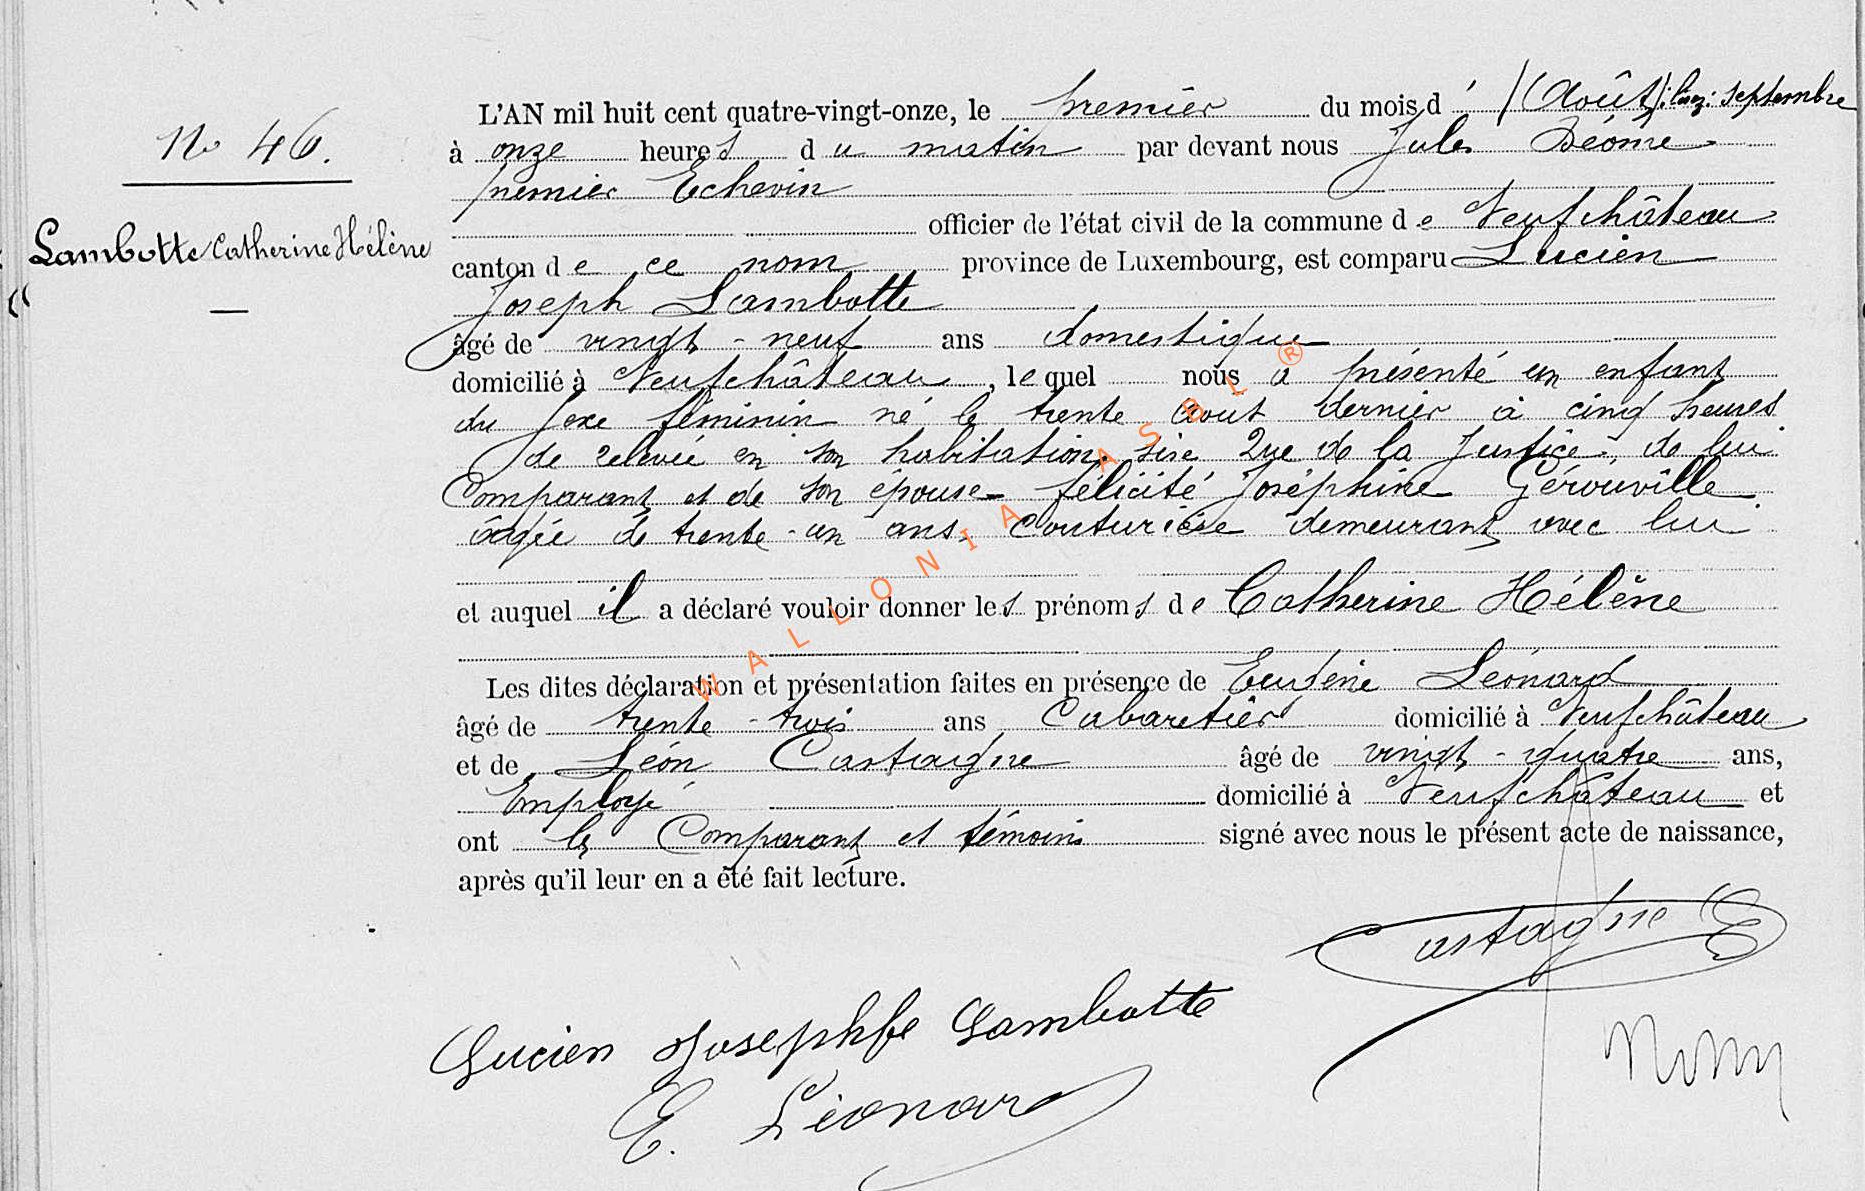 No 46.
Lambotte Catherine Hélène
L'AN mil huit cent quatre-vingt-onze, le premier du mois d' (Août) : lisez : septembre
à onze heures du matin par devant nous Jules
premier Echevin
officier de l'état civil de la commune de Neufchâteau
canton de ce nom province de Luxembourg, est comparu Lucien
Joseph Lambotte
âgé de vingt-neuf ans domestique
domicilié à Neufchâteau, lequel nous a présenté un enfant
du sexe féminin né le trente août dernier à cinq heures
de relevée en son habitation, sise Rue de la Justice, de lui
Comparant et de son épouse Félicité Joséphine Gérouville
âgée de trente-un ans, Couturière demeurant avec lui
et auquel il a déclaré vouloir donner les prénoms de Catherine Hélène
Les dites déclaration et présentation faites en présence de Eugène Léonard
âgé de trente-trois ans Cabaretier domicilié à Neufchâteau
et de Léon Castaigne âgé de vingt-quatre ans,
Employé domicilié à Neufchâteau et
ont les Comparant et témoins signé avec nous le présent acte de naissance,
après qu'il leur en a été fait lecture.
Castagne
Lucien Josephfe Lambotte
E. Léonard
WALLONIA ASBL ®